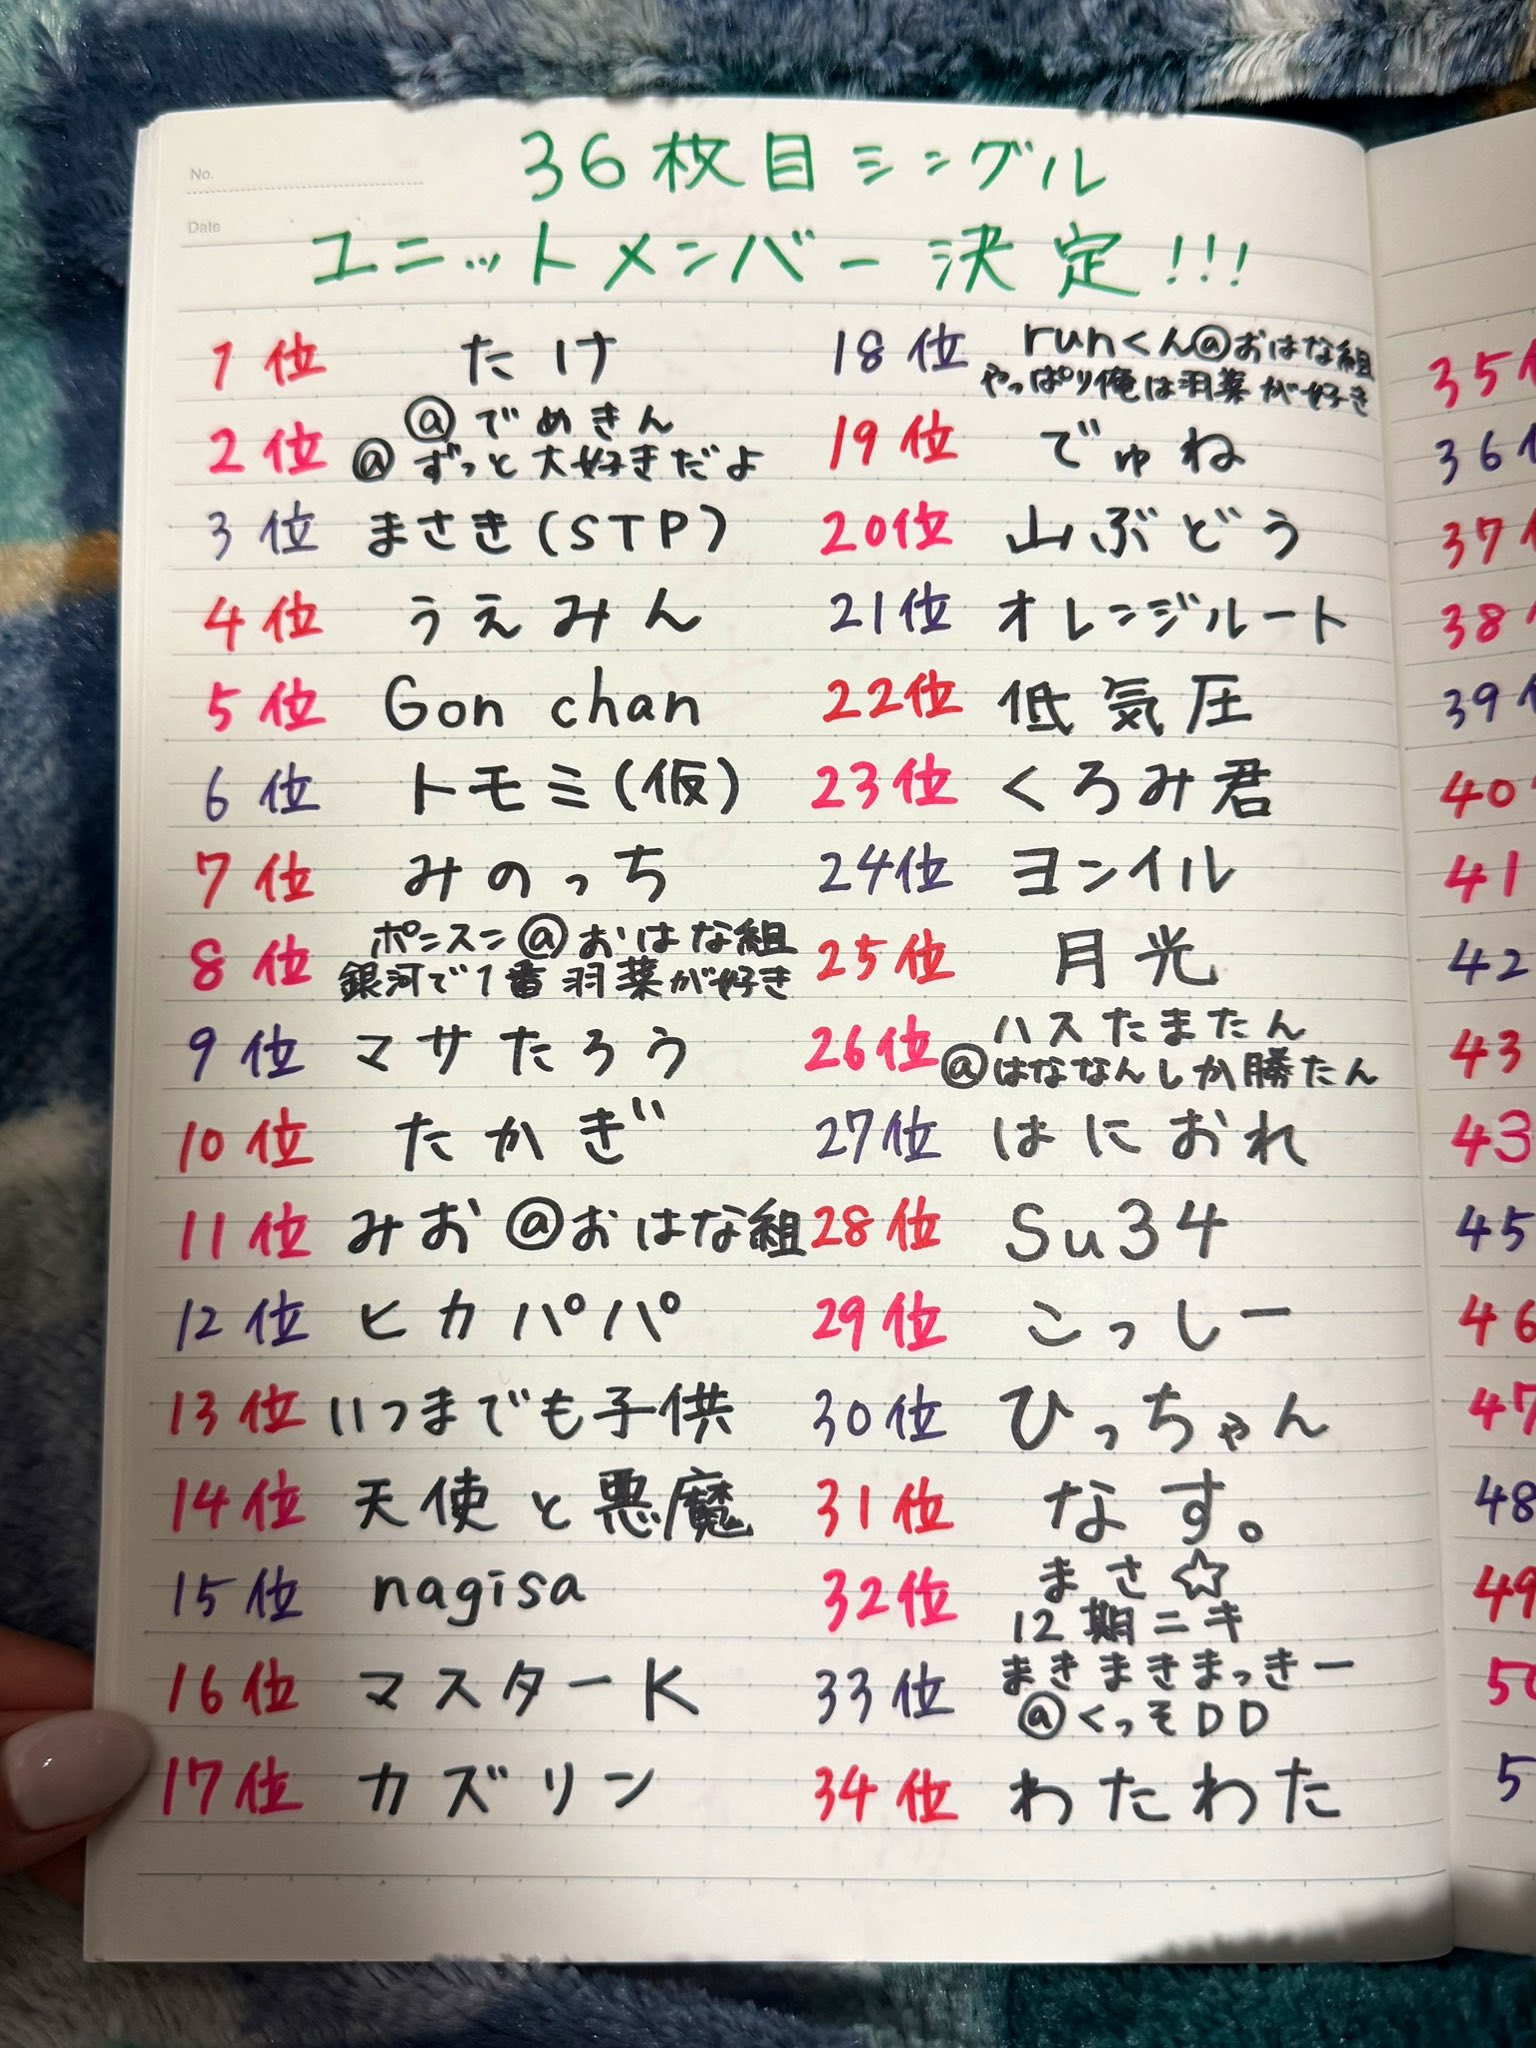 No.
Date
36枚目シングル
ユニットメンバー決定!!!
1位 たけ
2位 @でめきん
@ずっと大好きだよ
3位 まさき(STP)
4位 うえみん
5位 Gon chan
6位 トモミ(仮)
7位 みのっち
8位 ポンスン@おはな組
銀河で1番羽菜が好き
9位 マサたろう
10位 たかぎ"
11位 みお@おはな組
12位 ヒカパパ
13位 いつまでも子供
14位 天使と悪魔
15位 nagisa
16位 マスターK
17位 カズリン
18位 runくん@おはな組
やっぱり俺は羽菜が好き
19位 でゅね
20位 山ぶどう
21位 オレンジルート
22位 低気圧
23位 くろみ君
24位 ヨンイル
25位 月光
26位 ハスたまたん
@はななんしか勝たん
27位 はにおれ
28位 Su34
29位 こっしー
30位 ひっちゃん
31位 なす。
32位 まさ☆
12期ニキ
33位 まきまきまっきー
@くっそDD
34位 わたわた
35
36
37
38
39
40
41
42
43
43
45
46
47
48
49
5